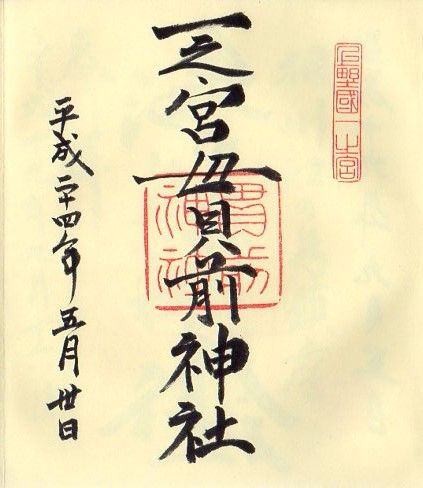 上野國一之宮
一之宮貫前神社
貫前
神社
平成二十四年五月卅日